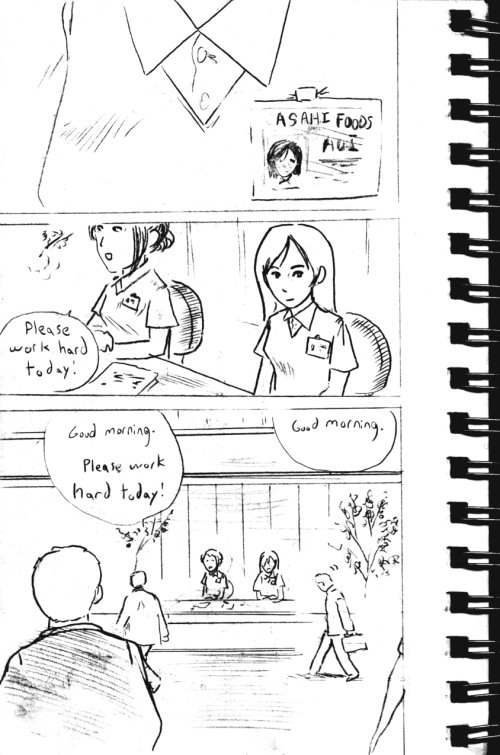 ASAHI FOODS
AOI
Please
work hard
today!
Good morning.
Please work
hard today!
Good morning.